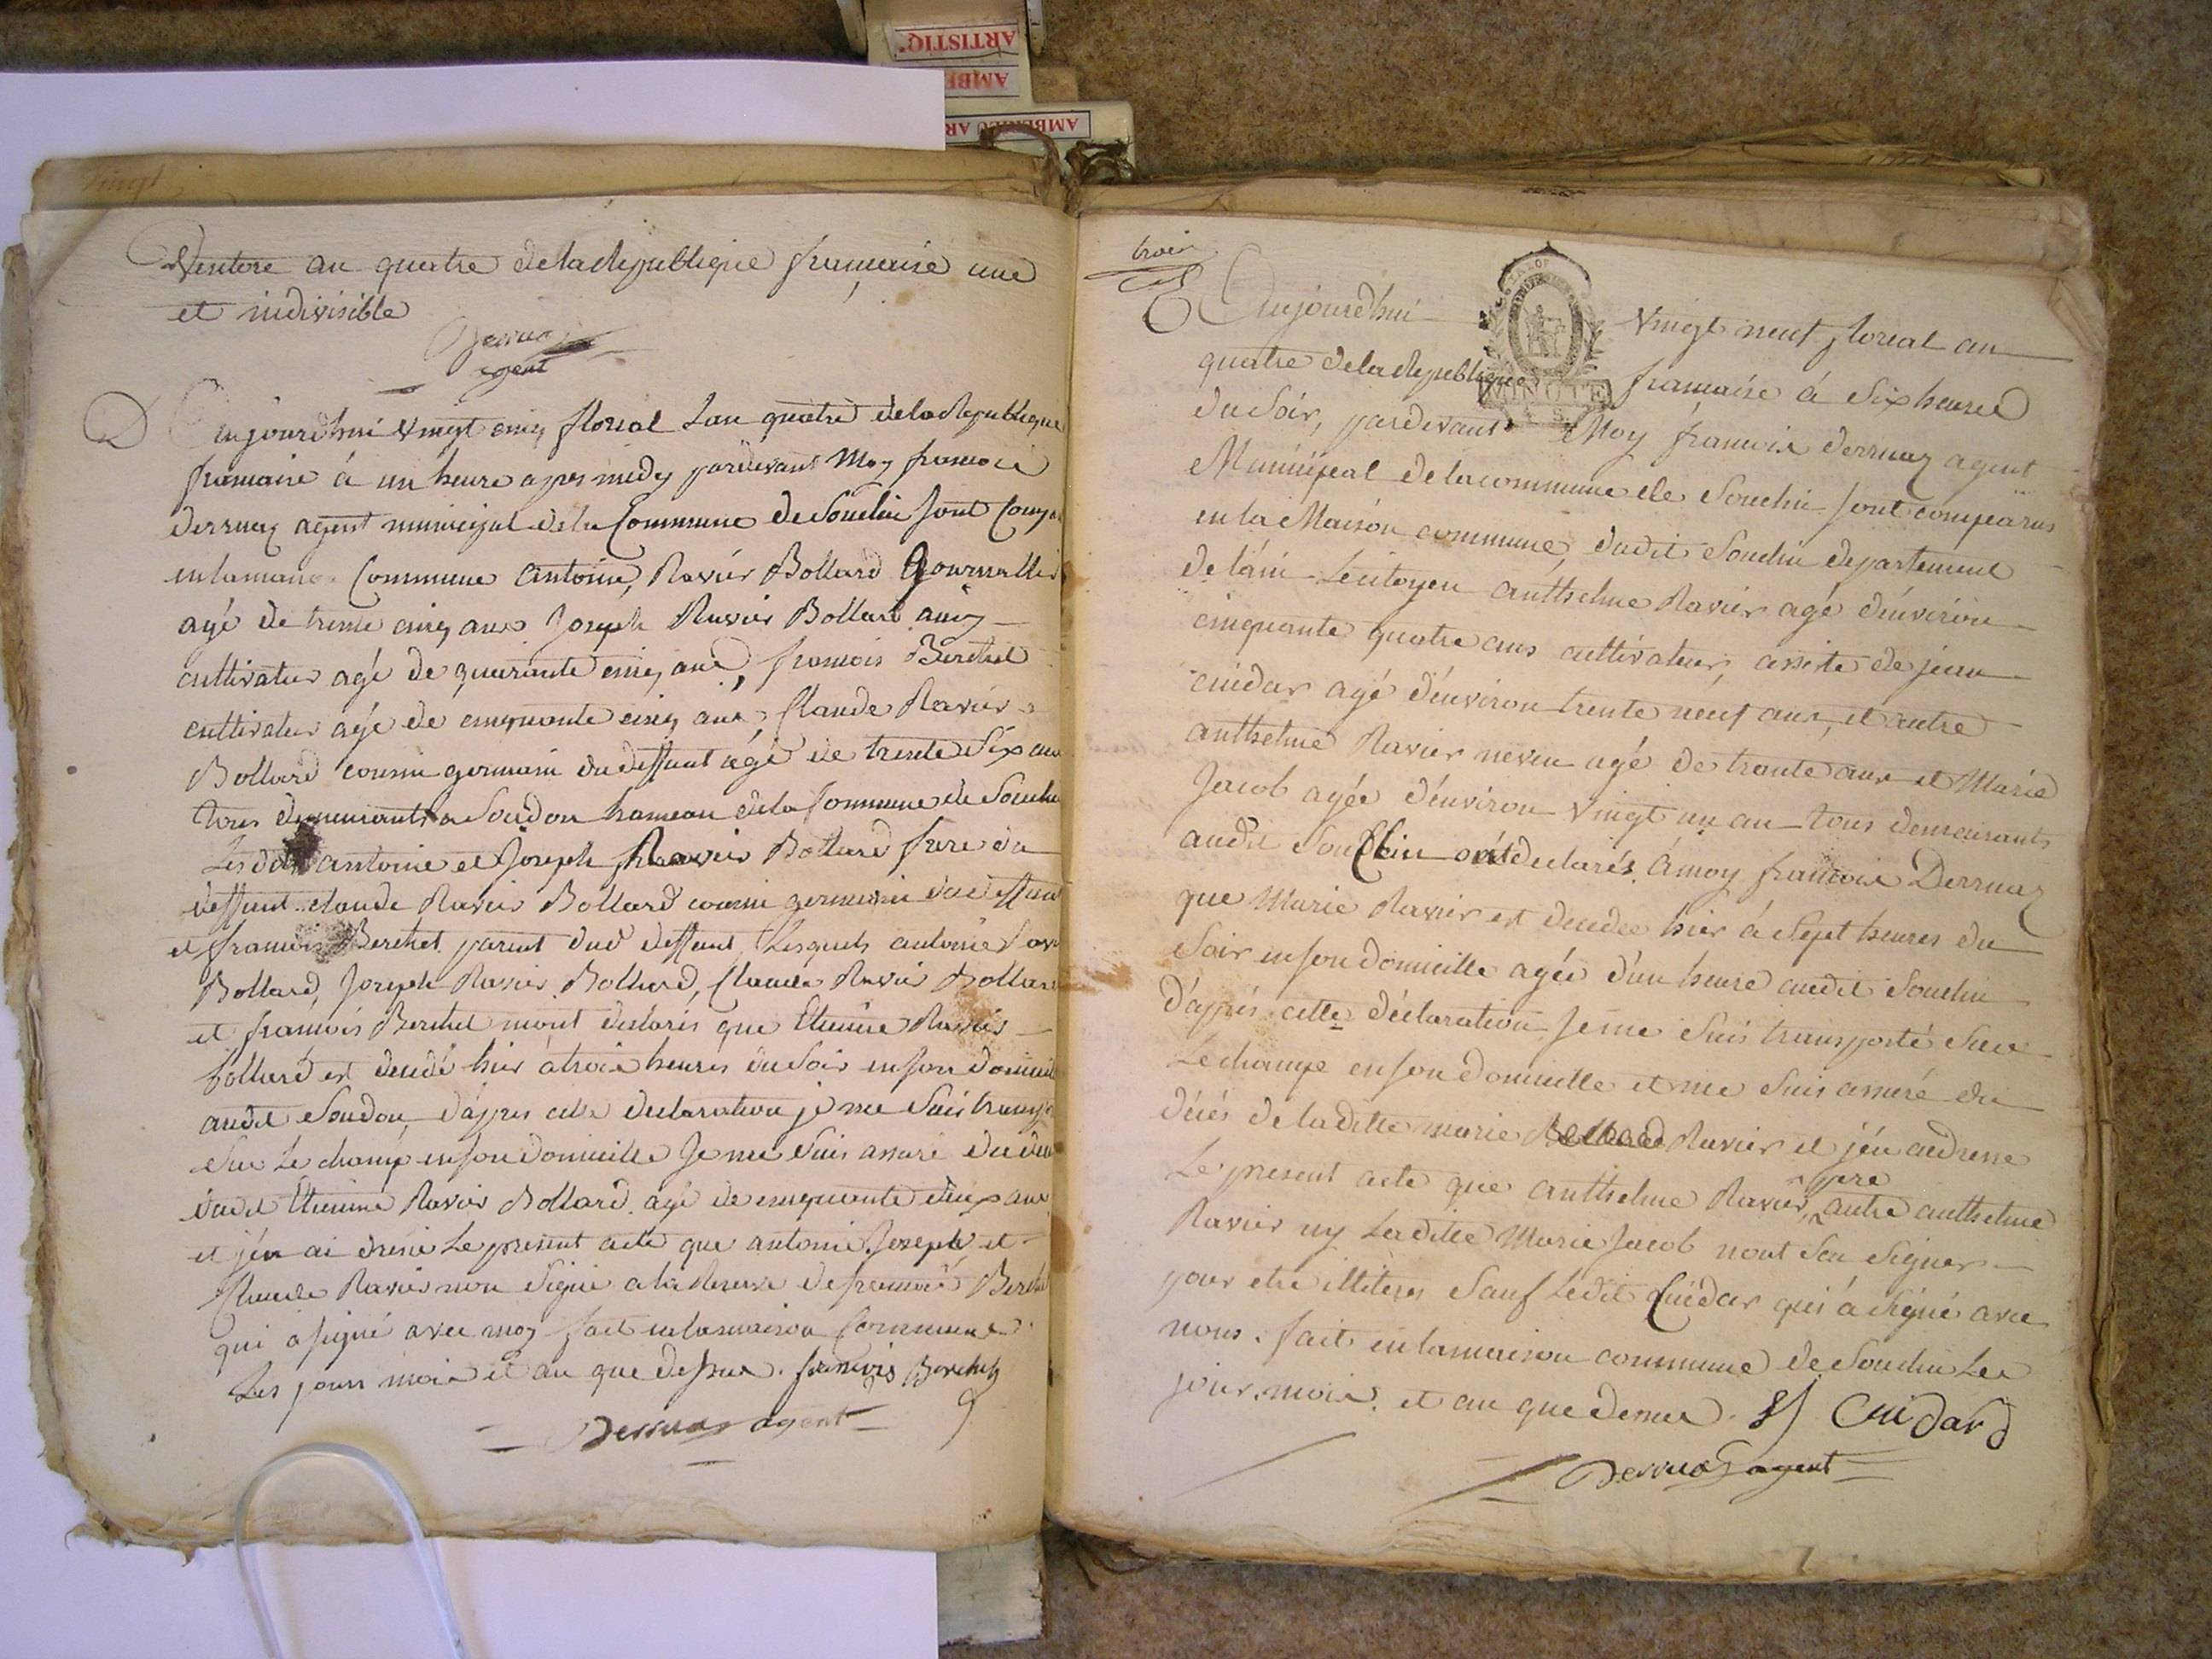 ARTISTIQ
AMBE
AMBERIEU AR
vingt
Ventose an quatre de la Republique française une
et indivisible
Derruaz
agent
D Aujourdhui vingt cinq floreal lan quatre de la Republique
francaise à un heure apres midy pardevant Moy francois
derruaz agent municipal de la Commune de Souclin sont Compa
en la maison Commune antoine, Ravier Bollard
agé de trente cinq ans Joseph Ravier Bollard
cultivateur agé de quarante cinq ans, francois Berthet
cultivateur agé de cinquante cinq ans, Claude Ravier
Bollard cousin germain du deffunt agé de trente Six ans
tous demeurants a Soudon hameau de la Commune de Souclin
Les dits antoine et Joseph Ravier Bollard frere du
deffunt claude Ravier Bollard cousin germain du deffunt
et francois Berthet parent dud deffunt Lesquels antoine Ravi
Bollard, Joseph Ravier Bollard, Claude Ravier Bollard
et francois Berthet mont declarés que Etienne Ravier
bollard est decedé hier à trois heures du Soir en son domicil
audit Soudon, dapres cette declaration je me Suis transpo
Sur Le champ en son domicille Je me Suis assuré du deces
dudit Etienne Ravier Bollard agé de cinquante deux ans
et jén ai dressé Le present acte que antoine Joseph et
Claude Ravier non Signé a la Reserve de francois Berthet
qui a signé avec moy fait en la maison Commune
Les jours mois et an que dessus. francois Berthet
Derruaz agent
trois
D Aujourdhui vingt neuf floreal an
MINUTE
quatre de la Republique francaise à Six heures
du Soir, pardevant Moy francois derruaz agent
Municipal de la commune de Souclin sont comparus
en la Maison commune, dudit Souclin departement
de láin Le citoyen anthelme Ravier agé dénviron
cinquante quatre ans cultivateur, assisté de jean
cuidar agé dénviron trente neuf ans, et autre
anthelme Ravier neveu agé de trante ans et Marie
Jacob agée dénviron vingt un an tous demeurants
audit Souclin ont declarés à moy francois Derruaz
que Marie Ravier est decedee hier à Sept heures du
Soir en son domicille agée dún heure audit Souclin
dáprés cette déclaration Je me Suis transporté Sur
Le champ en son domicille et me Suis assuré du
décés de laditte marie Bollard Ravier et jén ai dressé
Le present acte que anthelme Ravier, pere autre anthelme
Ravier ny Laditte Marie Jacob nont Seu Signer
pour etre illiteres Sauf Ledit Cuidar qui à Signé avec
nous. fait en la maison commune de Souclin Les
jour, mois, et an que dessus. Cuidard
Derruaz agent